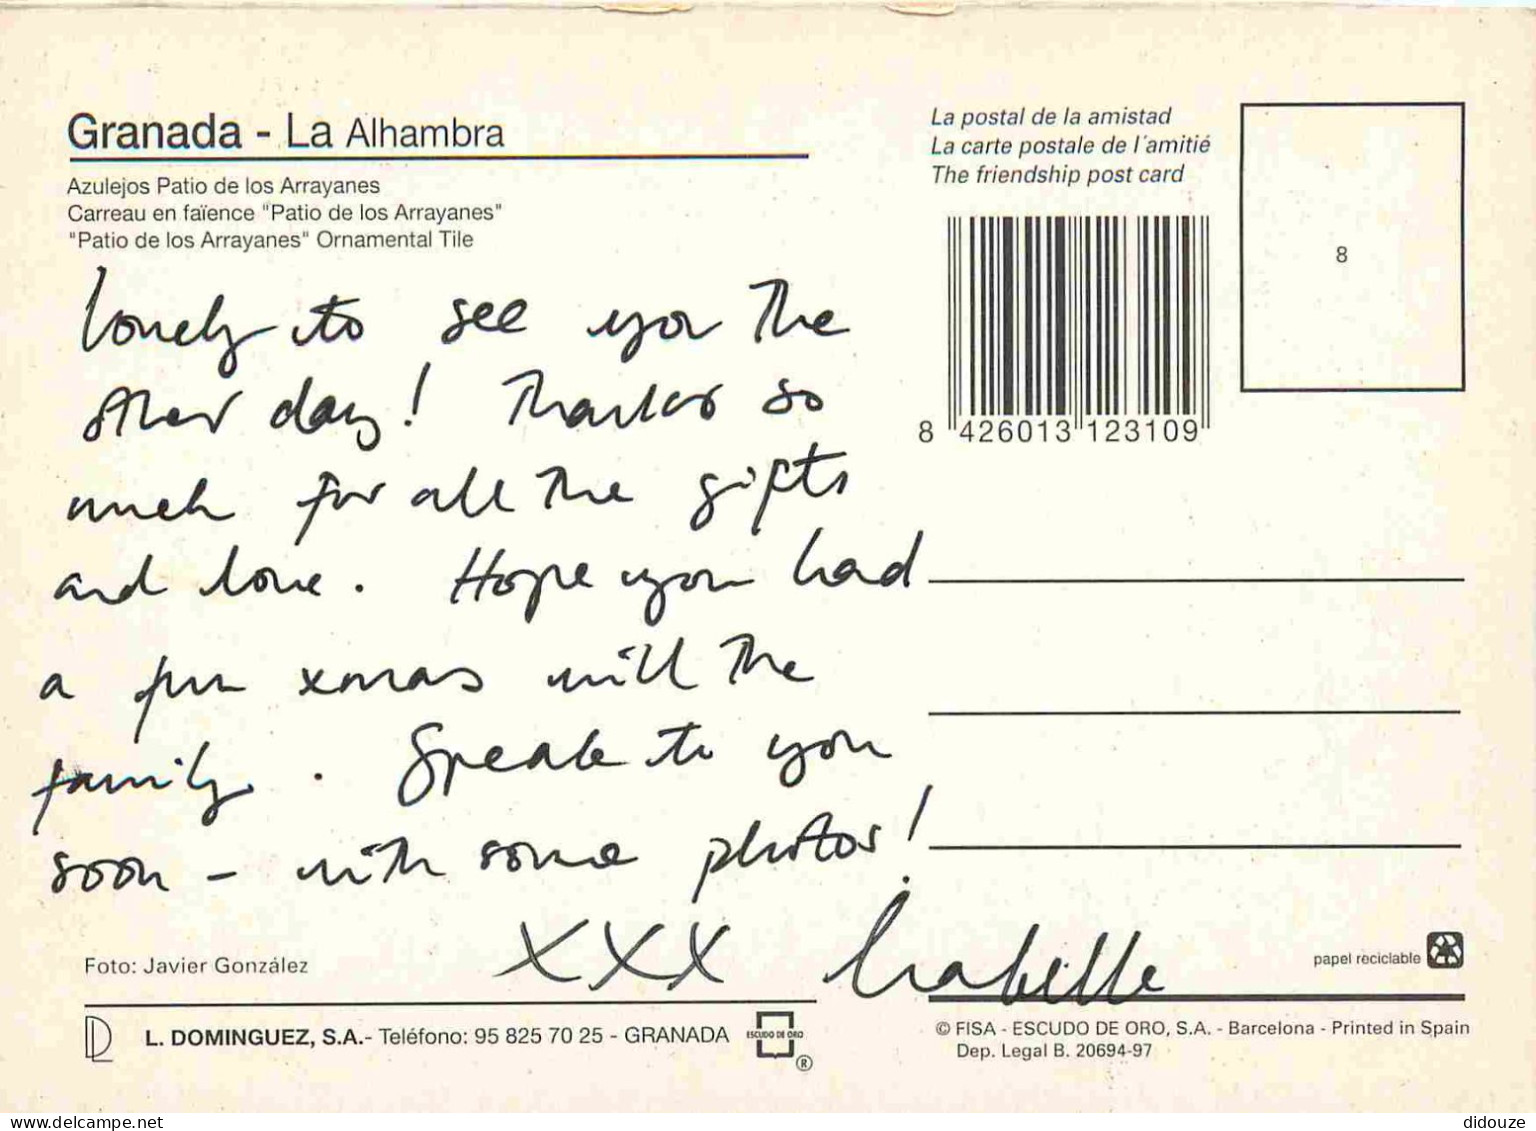 Granada - La Alhambra
Azulejos Patio de los Arrayanes
Carreau en faïence "Patio de los Arrayanes"
"Patio de los Arrayanes" Ornamental Tile
La postal de la amistad
La carte postale de l´amitié
The friendship post card
8
8 426013 123109
Lovely to see you the
other day! Thanks so
much for all the gifts
and love. Hope you had
a fun xmas with the
family. Speak to you
soon - with some photos!
XXX Isabelle
Foto: Javier González
papel reciclable
L. DOMINGUEZ, S.A.- Teléfono: 95 825 70 25 - GRANADA
ESCUDO DE ORO
®
© FISA - ESCUDO DE ORO, S.A. - Barcelona - Printed in Spain
Dep. Legal B. 20694-97
www.delcampe.net
didouze